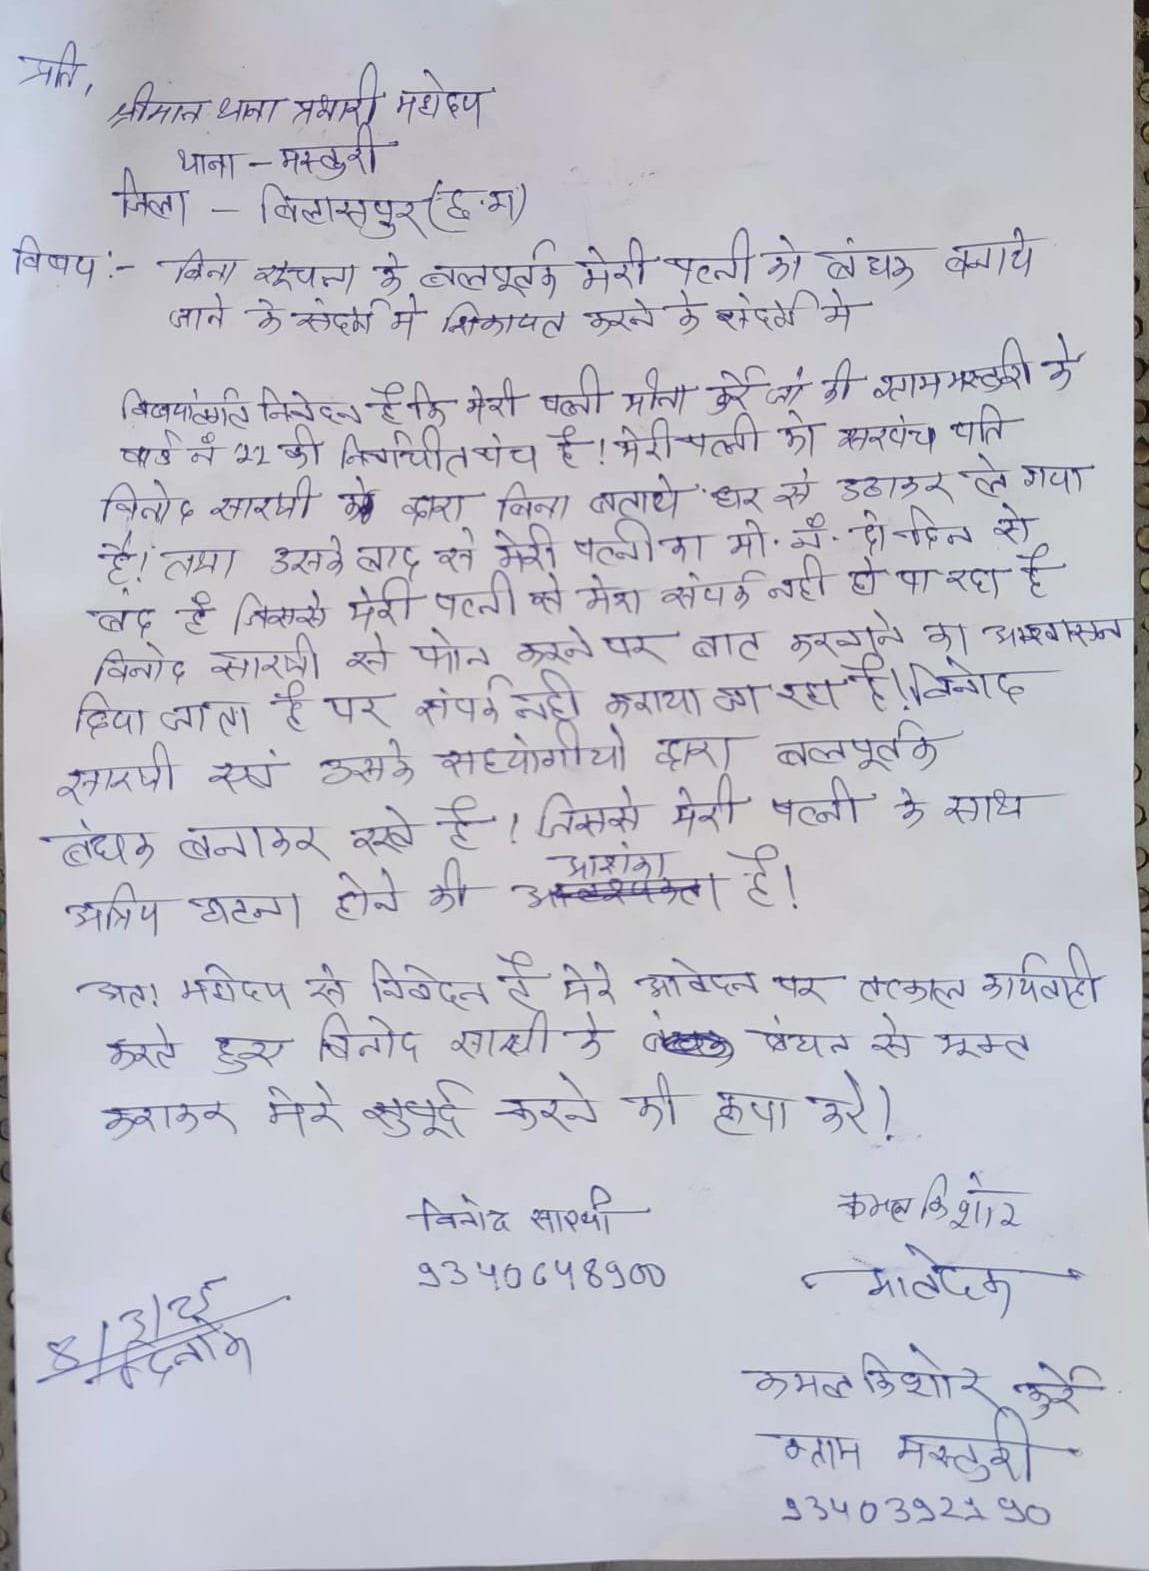 प्रति,
श्रीमान थाना प्रभारी महोदय
थाना - मस्तुरी
जिला - बिलासपुर (छ.ग)
विषय :- बिना सूचना के बलपूर्वक मेरी पत्नी को बंधक बनाये
जाने के संदर्भ मे शिकायत करने के संदर्भ मे
विषयांतर्गत निवेदन है कि मेरी पत्नी मीना कुर्रे जो की ग्राम मस्तुरी के
वार्ड नं 22 की निर्वाचीत पंच है! मेरी पत्नी को सरपंच पति
विनोद सारथी के द्वारा बिना बताये घर से उठाकर ले गया
है! तथा उसके बाद से मेरी पत्नी का मो. नं. दो दिन से
बंद है जिससे मेरी पत्नी से मेरा संपर्क नही हो पा रहा है
विनोद सारथी से फोन करने पर बात करवाने का आश्वासन
दिया जाता है पर संपर्क नही कराया जा रहा है! विनोद
सारथी एवं उसके सहयोगीयो द्वारा बलपूर्वक
बंधक बनाकर रखे है! जिससे मेरी पत्नी के साथ
अप्रिय घटना होने की आशंका है!
अतः महोदय से निवेदन है मेरे आवेदन पर तत्काल कार्यवाही
करते हुए विनोद सारथी के बंधन से मुक्त
कराकर मेरे सुपुर्द करने की कृपा करे!
विनोद सारथी
9340648900
कमल किशोर
आवेदक
8/3/25
दिनांक
कमल किशोर कुर्रे
ग्राम मस्तुरी
9340392190